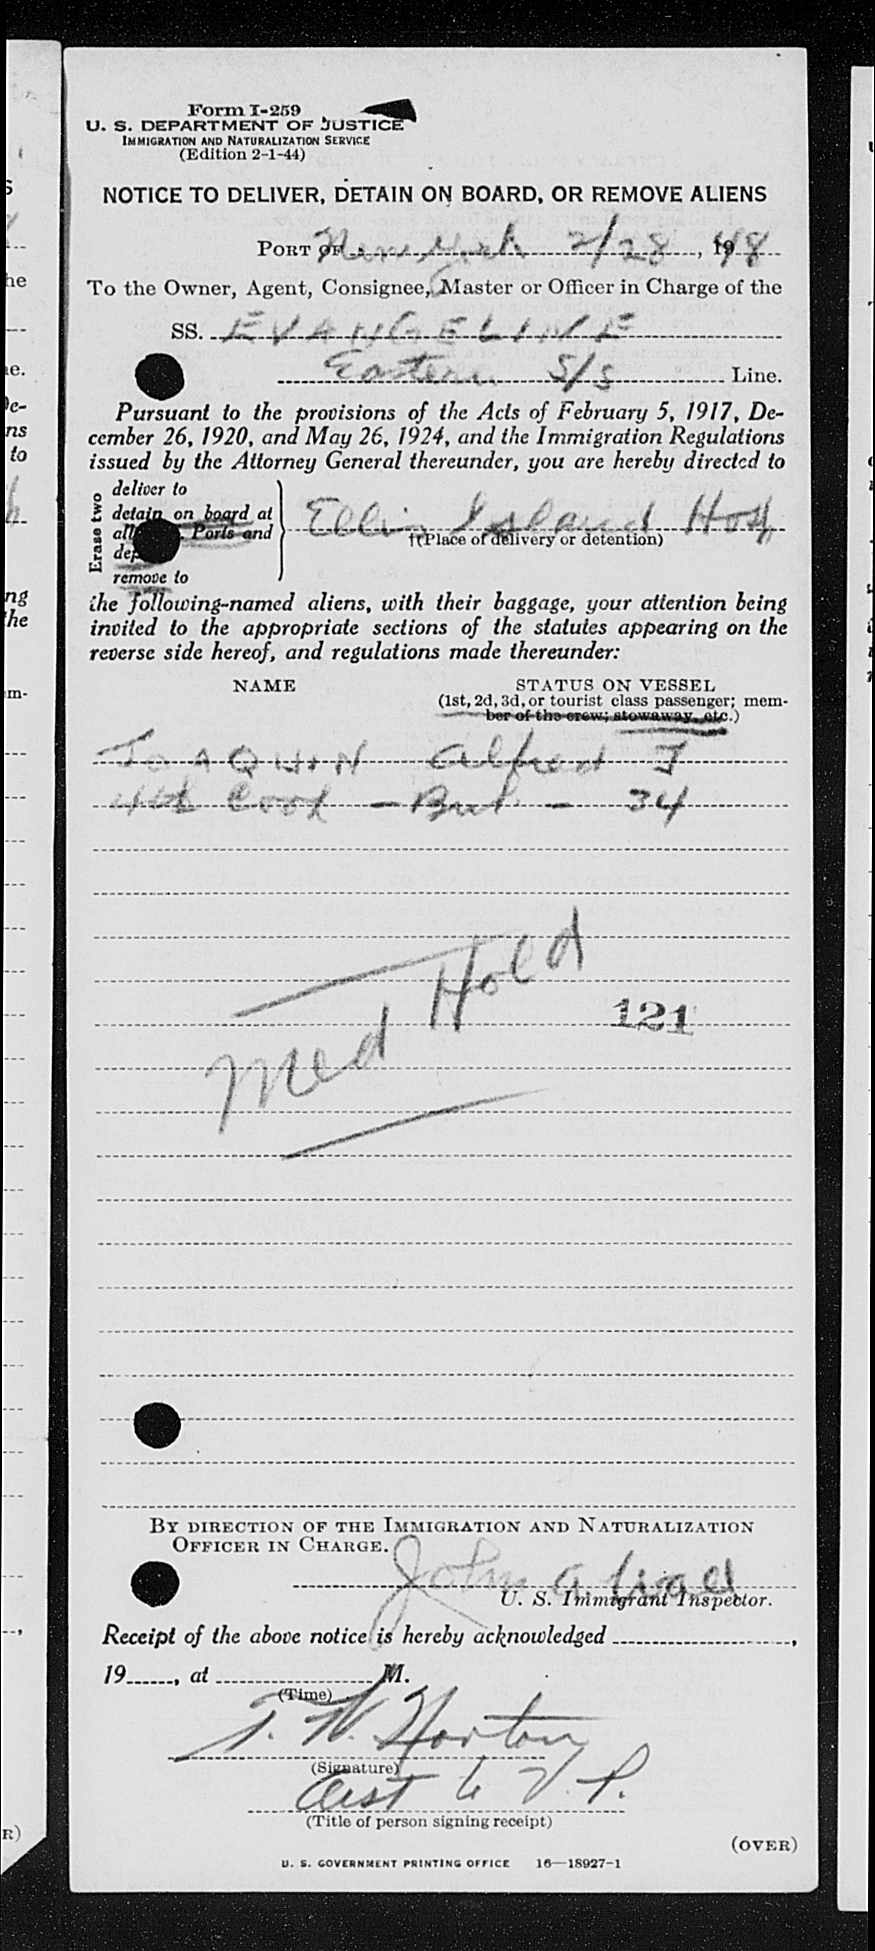 Form I-259
U. S. DEPARTMENT OF JUSTICE
IMMIGRATION AND NATURALIZATION SERVICE
(Edition 2-1-44)
NOTICE TO DELIVER, DETAIN ON BOARD, OR REMOVE ALIENS
PORT OF New York 2/28, 1948
To the Owner, Agent, Consignee, Master or Officer in Charge of the
SS. EVANGELINE
Eastern S/S Line.
Pursuant to the provisions of the Acts of February 5, 1917, De-
cember 26, 1920, and May 26, 1924, and the Immigration Regulations
issued by the Attorney General thereunder, you are hereby directed to
Erase two
deliver to
detain on board at
all Ports and
remove to
Ellis Island Hosp
†(Place of delivery or detention)
the following-named aliens, with their baggage, your attention being
invited to the appropriate sections of the statutes appearing on the
reverse side hereof, and regulations made thereunder:
NAME STATUS ON VESSEL
(1st, 2d, 3d, or tourist class passenger; mem-
ber of the crew; stowaway, etc.)
JOAQUIN Alfred J
4th Cook - Brit. - 34
Med Hold
121
BY DIRECTION OF THE IMMIGRATION AND NATURALIZATION
OFFICER IN CHARGE.
John A
U. S. Immigrant Inspector.
Receipt of the above notice is hereby acknowledged ,
19 , at M.
(Time)
T. W. Horton
(Signature)
Asst to V. P.
(Title of person signing receipt)
(OVER)
U. S. GOVERNMENT PRINTING OFFICE 16—18927-1